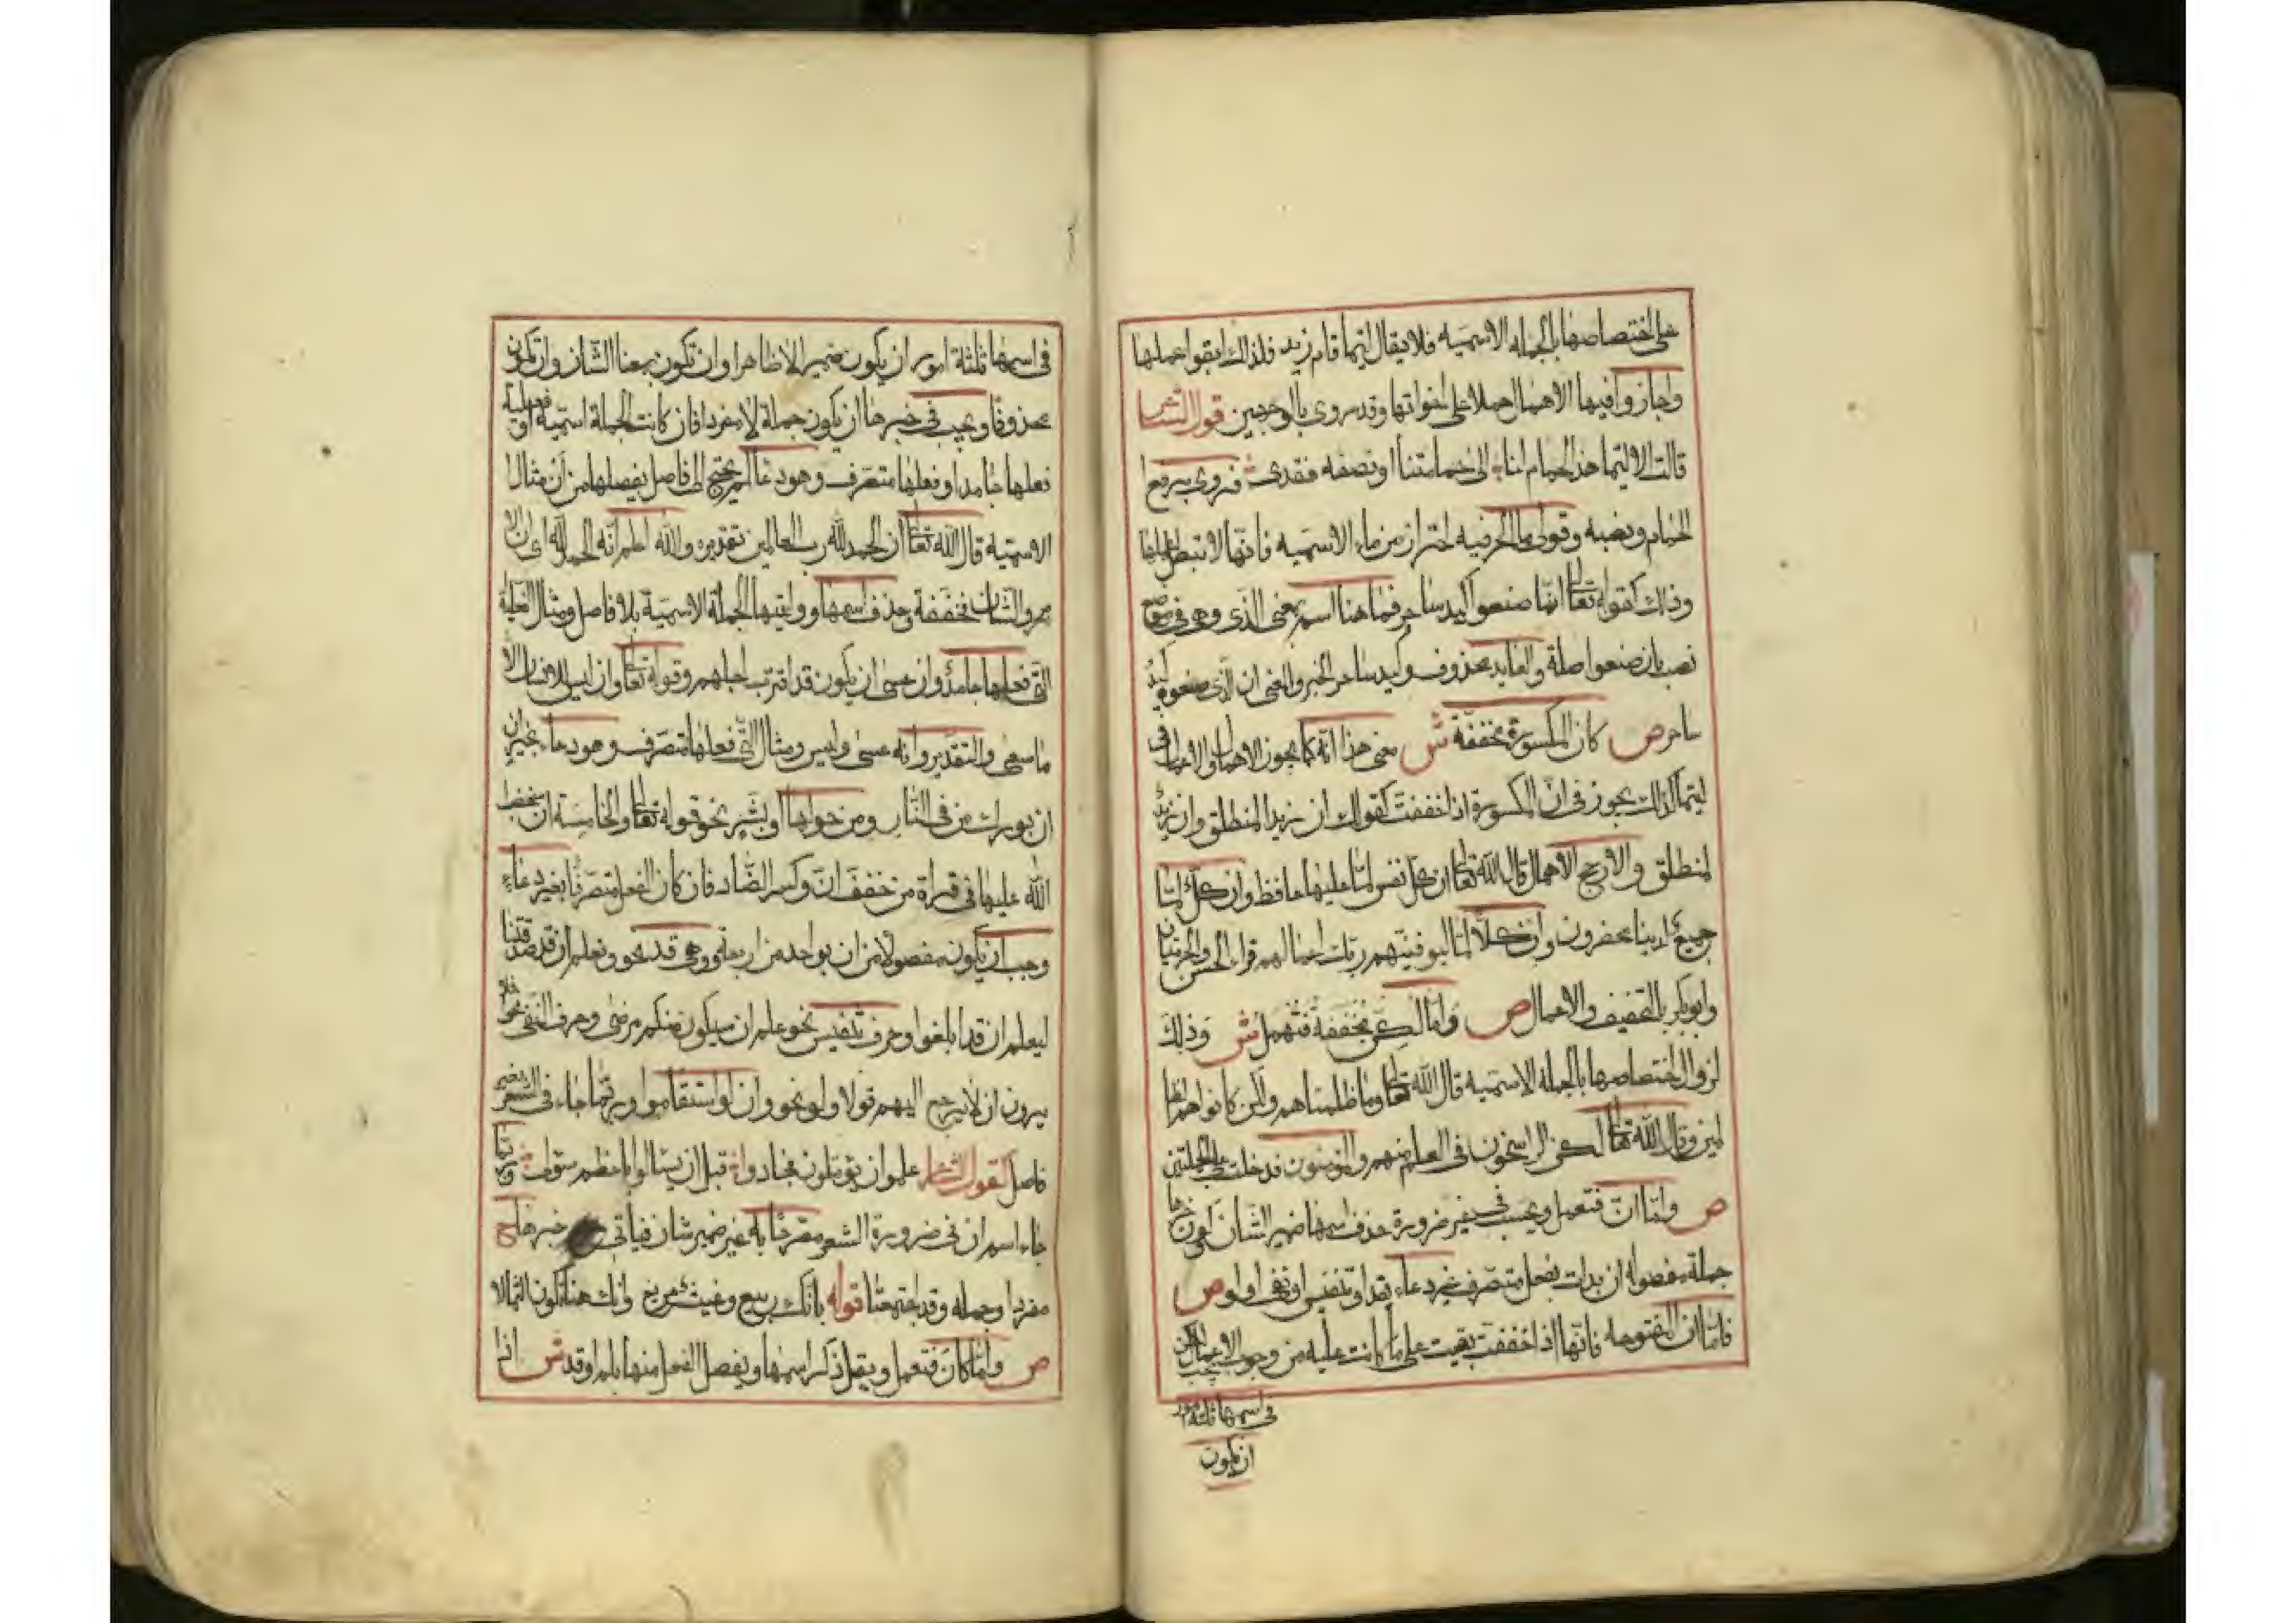 على اختصاصها بالجملة الاسمية فلا يقال ليتما قام زيد فلذلك ابقوا عملها
واجازوا فيها الاهمال حملا على اخواتها وقد روى بالوجهين قول الشاعر
قالت الا ليتما هذا الحمام لنا الى حمامتنا او نصفه فقدى فروى برفع
الحمام ونصبه وقولى ما الحرفية احتراز من ماء الاسمية فانها لا تبطل عملها
وذلك كقوله تعالى انما صنعوا كيد ساحر فما هنا اسم بمعنى الذى وهو فى موضع
نصب بان صنعوا صلة والعايد محذوف وكيد ساحر الخبر والمعنى ان الذى صنعوه كيد
ساحر ص كان المكسورة مخففة ش معنى هذا انه كما يجوز الاهمال والاعمال فى
ليتما كذلك يجوز فى ان المكسورة اذا خففت كقولك ان زيدا لمنطلق وان زيد
لمنطلق والارجح الاهمال قال الله تعالى ان كل نفس لما عليها حافظ وان كل لما
جميع لدينا محضرون وان كلا لما ليوفينهم ربك اعمالهم قراء الحرميان
وابو بكر بالتخفيف والاعمال ص واما لكن مخففة فتهمل ش وذلك
لزوال اختصاصها بالجملة الاسمية قال الله تعالى وما ظلمناهم ولكن كانوا هم الظا
لمين وقال الله تعالى لكن الراسخون فى العلم منهم والمؤمنون فدخلت على الجملتين
ص واما ان فتعمل ويجب فى غير ضرورة حذف اسمها ضمير الشان وكون خبرها
جملة مفصولة ان بدات بفعل متصرف غير دعاء بقد او تنفيس او نفى او لو ص
فاما ان المفتوحه فانها اذا خففت بقيت على ما كانت عليه من وجوب الاعمال لكن يجب
فى اسمها ثلثة امور
ان يكون
فى اسمها ثلثة امور ان يكون ضمير الا ظاهرا وان تكون بمعنا الشان وان تكون
محذوفا ويجب فى خبرها ان يكون جملة لا مفردا فان كانت الجملة اسمية او فعلية
فعلها جامد او فعلها متصرف وهو دعا لم يحتج الى فاصل يفصلها من ان مثال
الاسمية قال الله تعالى ان الحمد لله رب العالمين تقديره والله اعلم انه الحمد لله اى ان الا
مر والشان فخففة وحذف اسمها ووليتها الجملة الاسمية بلا فاصل ومثال الفعلية
التى فعلها جامد وان عسى ان يكون قد اقترب اجلهم وقوله تعالى وان ليس للانسان الا
ما سعى والتقدير وانه عسى وليس ومثال التى فعلها متصرف وهو دعاء بخير ان
ان بورك من فى النار ومن حولها او بشر نحو قوله تعالى والخامسة ان غضب
الله عليها فى قراة من خفف ان وكسر الضاد فان كان الفعل متصرفا بغير دعاء
وجب ان يكون مفصولا من ان بواحد من اربعة وهى قد نحو ونعلم ان قد صدقتنا
ليعلم ان قد ابلغوا وحرف تنفيس نحو علم ان سيكون منكم مرضى وحرف النفى نحو افلا
يرون ان لا يرجع اليهم قولا ولو نحو وان لو استقاموا وربما جاء فى الشعر بغير
فاصل كقول الشاعر علموا ان يؤملون فجادوا قبل ان يسالوا باعظم سؤل وربما
جاء اسم ان فى ضرورة الشعر مصرحا به غير ضمير شان فياتى خبرها ح
مفردا وجمله وقد اجتمعتا قوله بانك ربيع وغيث مريع وانك هناك تكون الثمالا
ص واما كان فتعمل ويقل ذكر اسمها ويفصل الفعل منها بلم او قد ش اذا